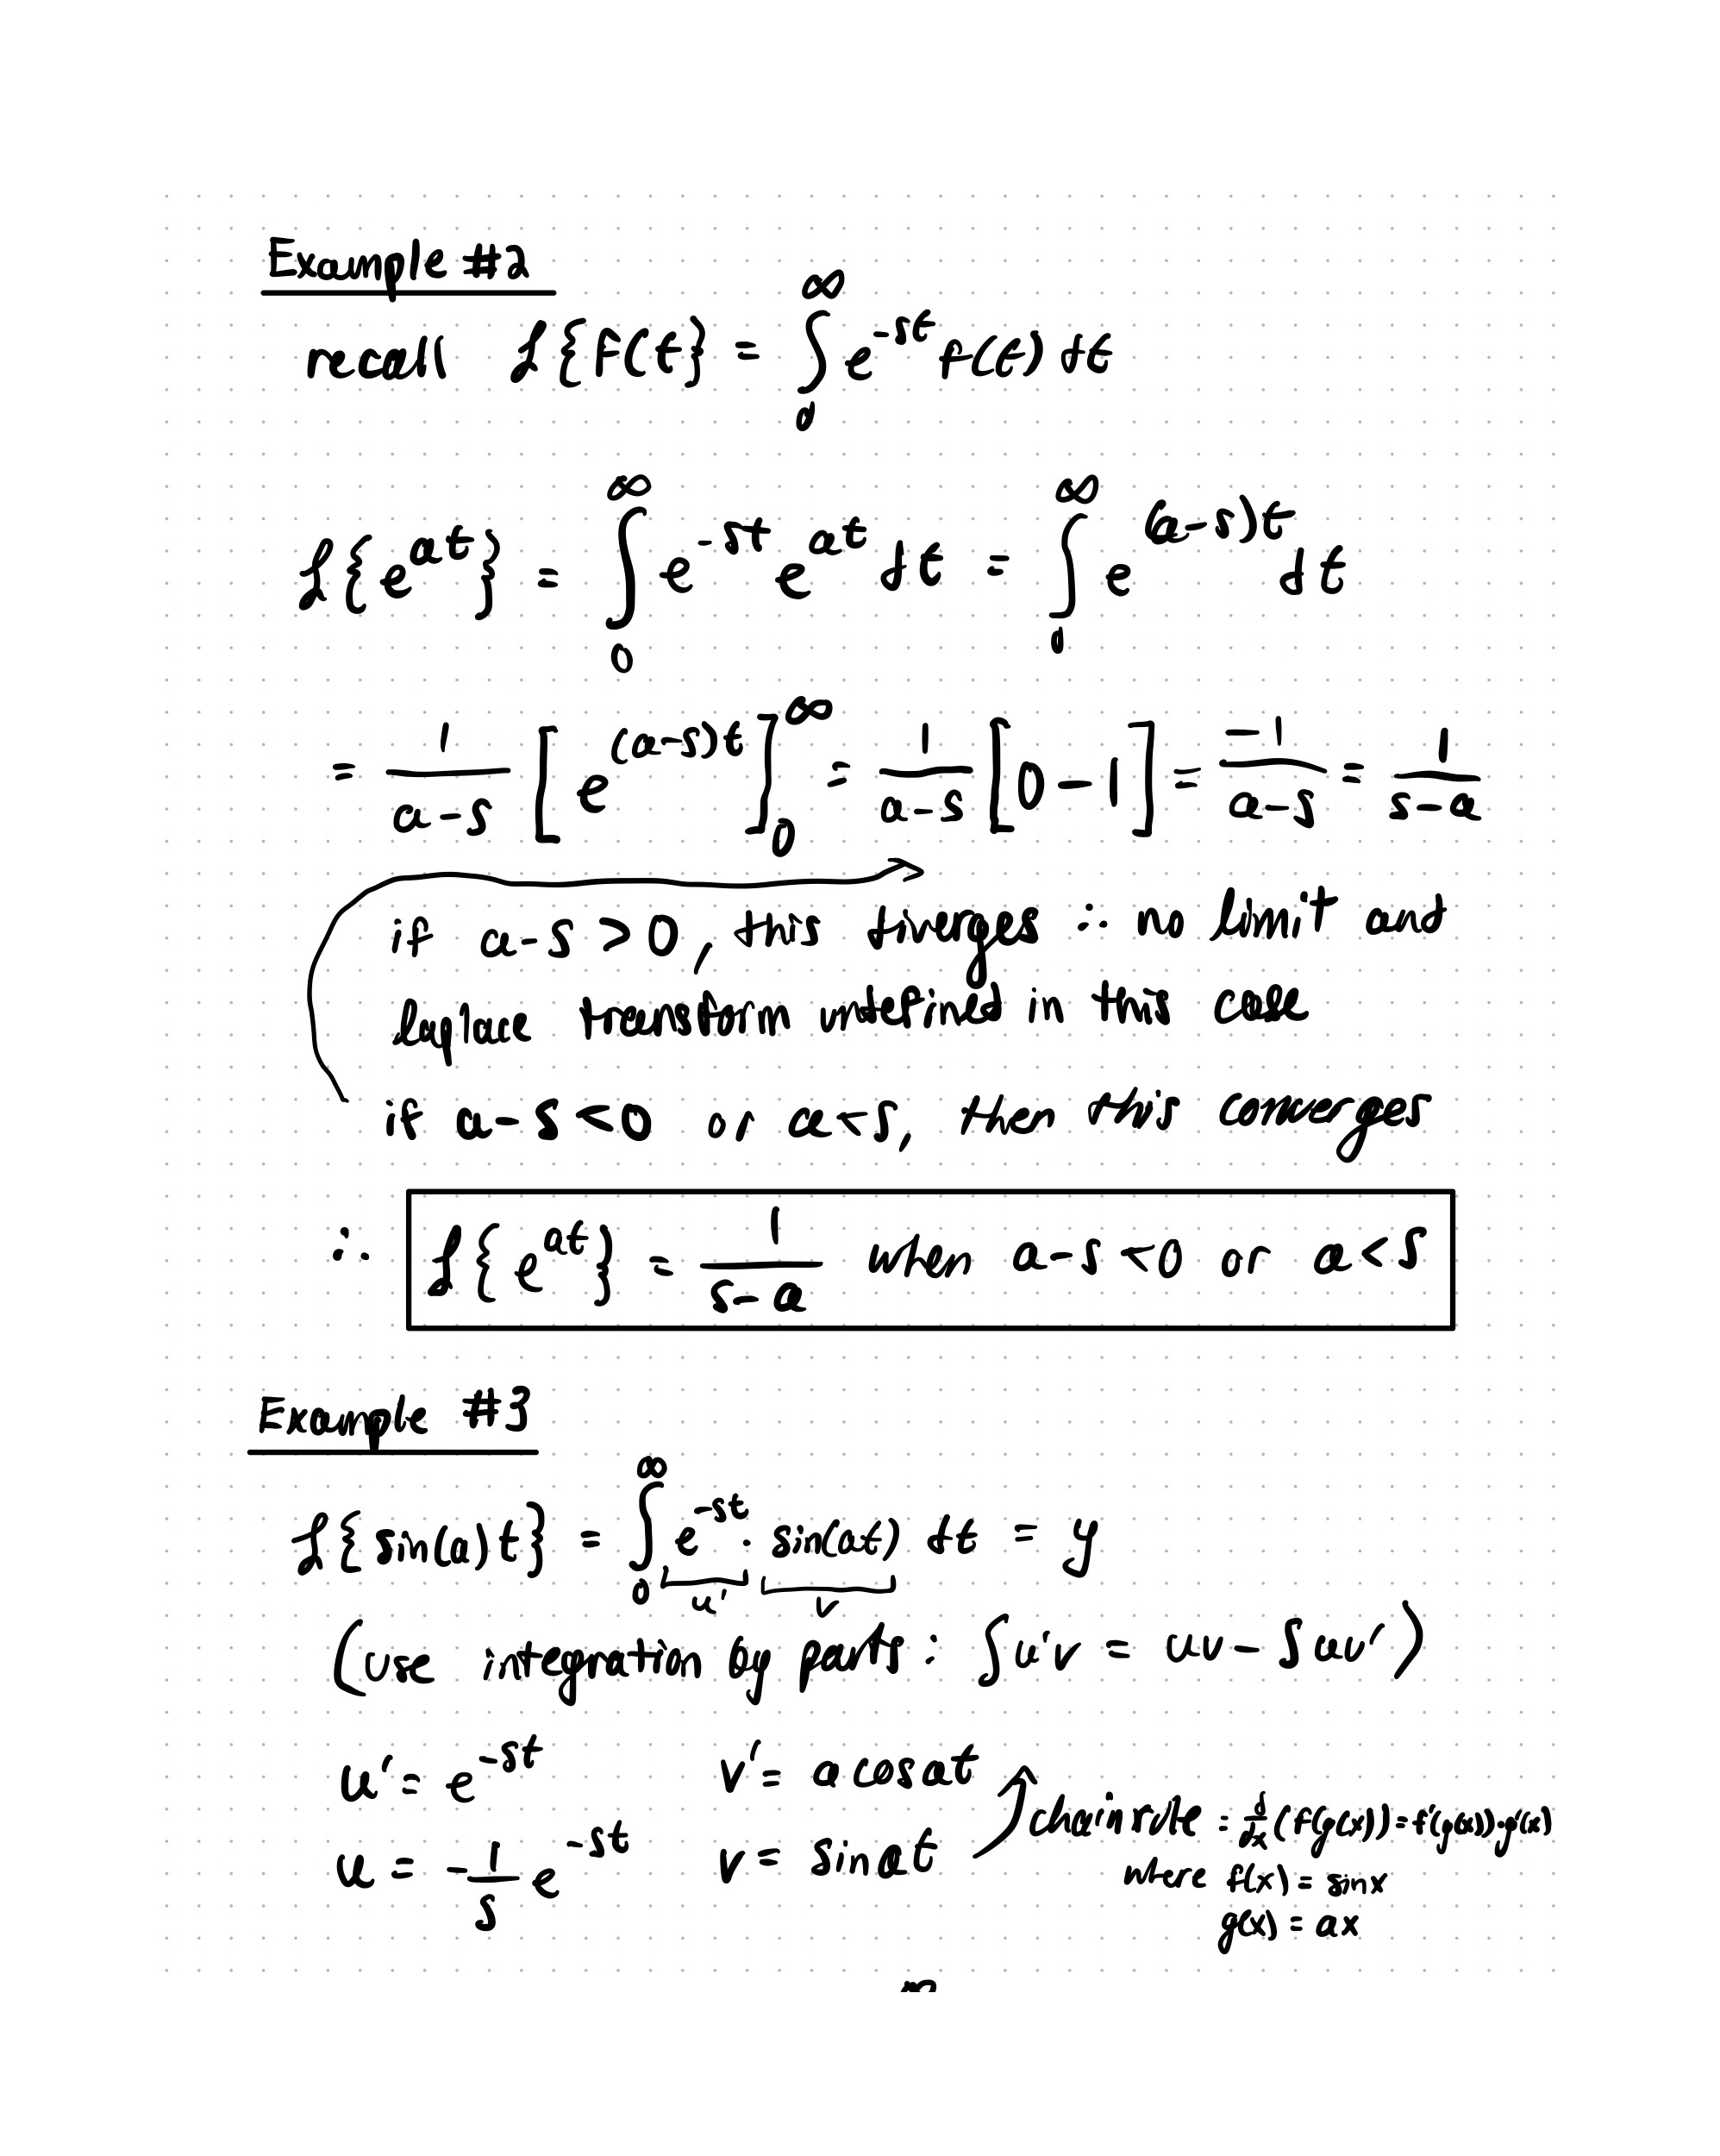 Example #2
recall ℒ{f(t} = ∫₀^∞ e^{-st} f(t) dt
ℒ{e^{at}} = ∫₀^∞ e^{-st} e^{at} dt = ∫₀^∞ e^{(a-s)t} dt
= 1/(a-s) [e^{(a-s)t}]₀^∞ = 1/(a-s) [0-1] = -1/(a-s) = 1/(s-a)
if a-s > 0, this diverges ∴ no limit and
laplace transform undefined in this case
if a-s < 0 or a < s, then this converges
∴ ℒ{e^{at}} = 1/(s-a) when a-s < 0 or a < s
Example #3
ℒ{sin(a)t} = ∫₀^∞ e^{-st} · sin(at) dt = y
u' v
(use integration by parts: ∫u'v = uv - ∫uv')
u' = e^{-st} v' = a cosat
u = -1/s e^{-st} v = sinat
chain rule = d/dx (f(g(x)) = f'(g(x))·g'(x)
where f(x) = sinx
g(x) = ax